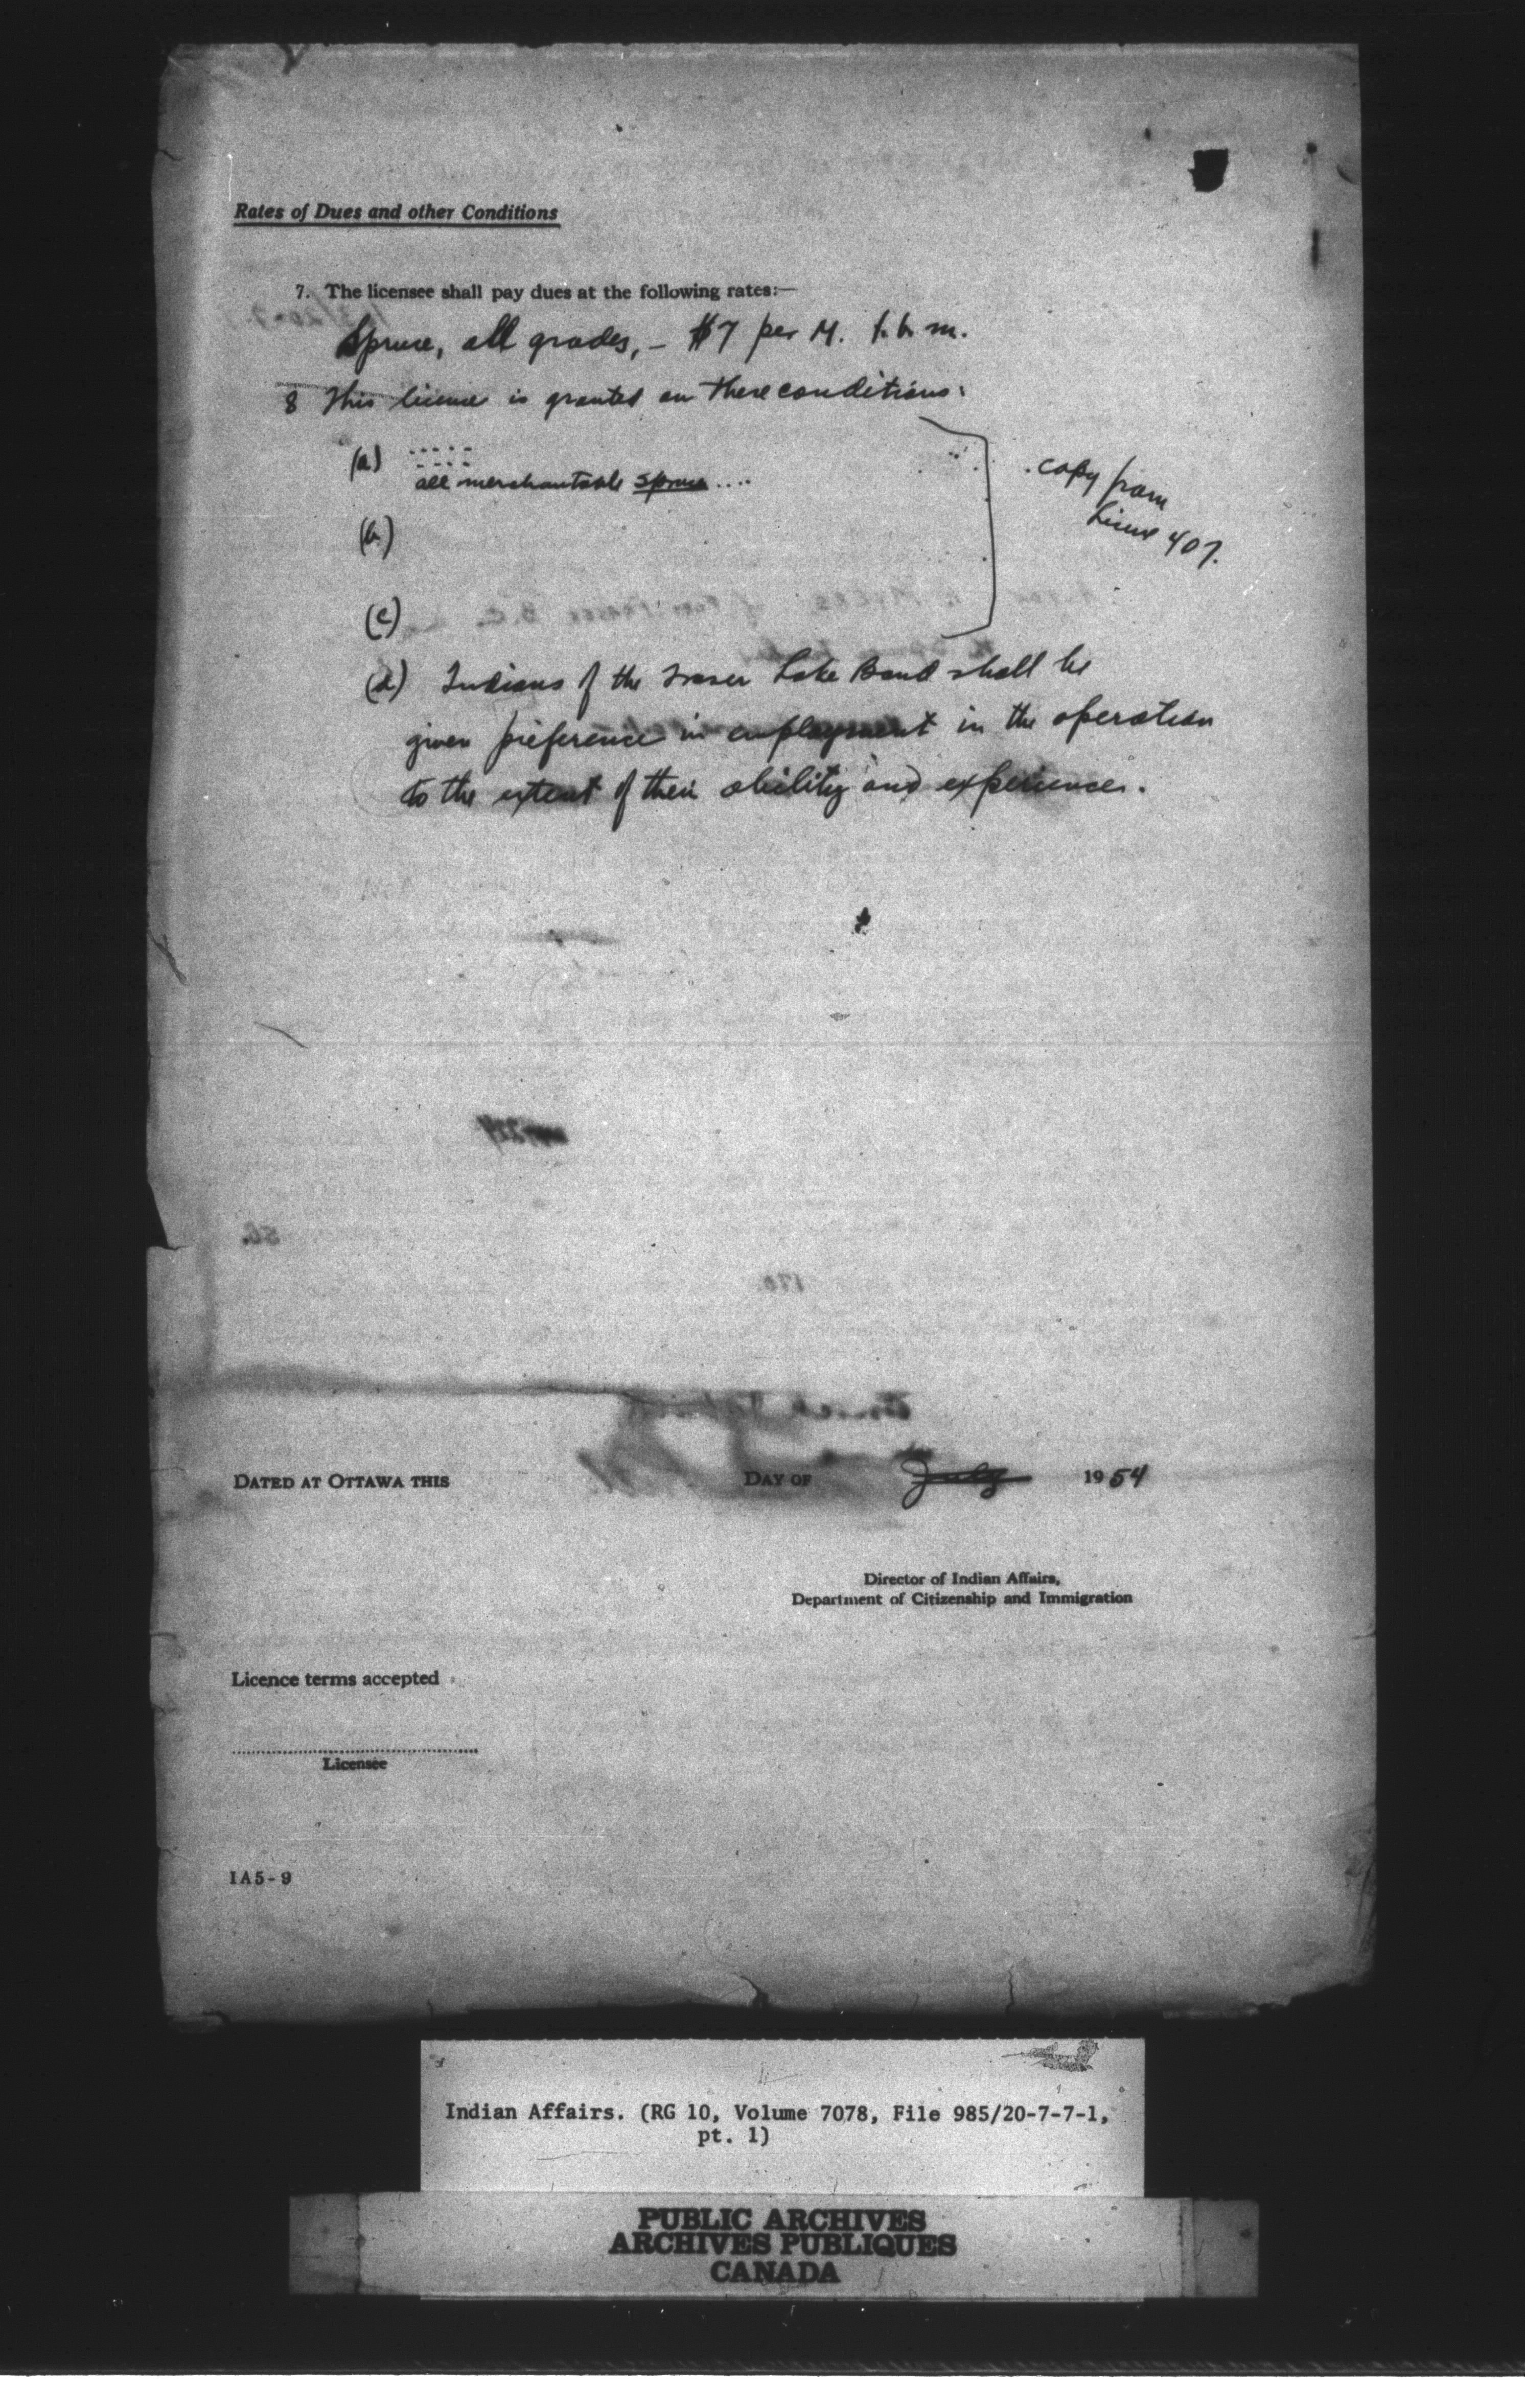 Rates of Dues and other Conditions
7. The licensee shall pay dues at the following rates:—
Spruce, all grades, – $7 per M. f. b. m.
8 This license is granted on these conditions:
(a) .....
all merchantable spruce ....
(b)
(c)
copy from
License 407.
(d) Indians of the Fraser Lake Band shall be
given preference in employment in the operation
to the extent of their ability and experience.
DATED AT OTTAWA THIS DAY OF July 1954
Director of Indian Affairs,
Department of Citizenship and Immigration
Licence terms accepted
Licensee
IA5-9
Indian Affairs. (RG 10, Volume 7078, File 985/20-7-7-1,
pt. 1)
PUBLIC ARCHIVES
ARCHIVES PUBLIQUES
CANADA